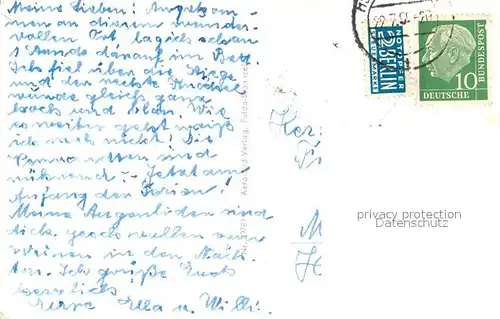 Meine Lieben! Angekom-
men an diesem wunder-
vollen Ort lag ich schon
1 Stunde darauf im Bett.
Ich fiel über die Stiege
und der rechte Knöchel
wurde gleich ganz
hoch und blau. Wie
es weiter geht weiß
ich noch nicht! Die
sind
rührend. Jetzt am
Anfang der Ferien!
Meine Augenlider sind
dick geschwollen vom
Weinen in den Näch-
ten. Ich grüße Euch
herzlich
Eure Ella u. Willi.
Verlag, Fulda
NOTOPFER
2 BERLIN
STEUERMARKE
10
DEUTSCHE
BUNDESPOST
Her
F
M
H
privacy protection
Datenschutz